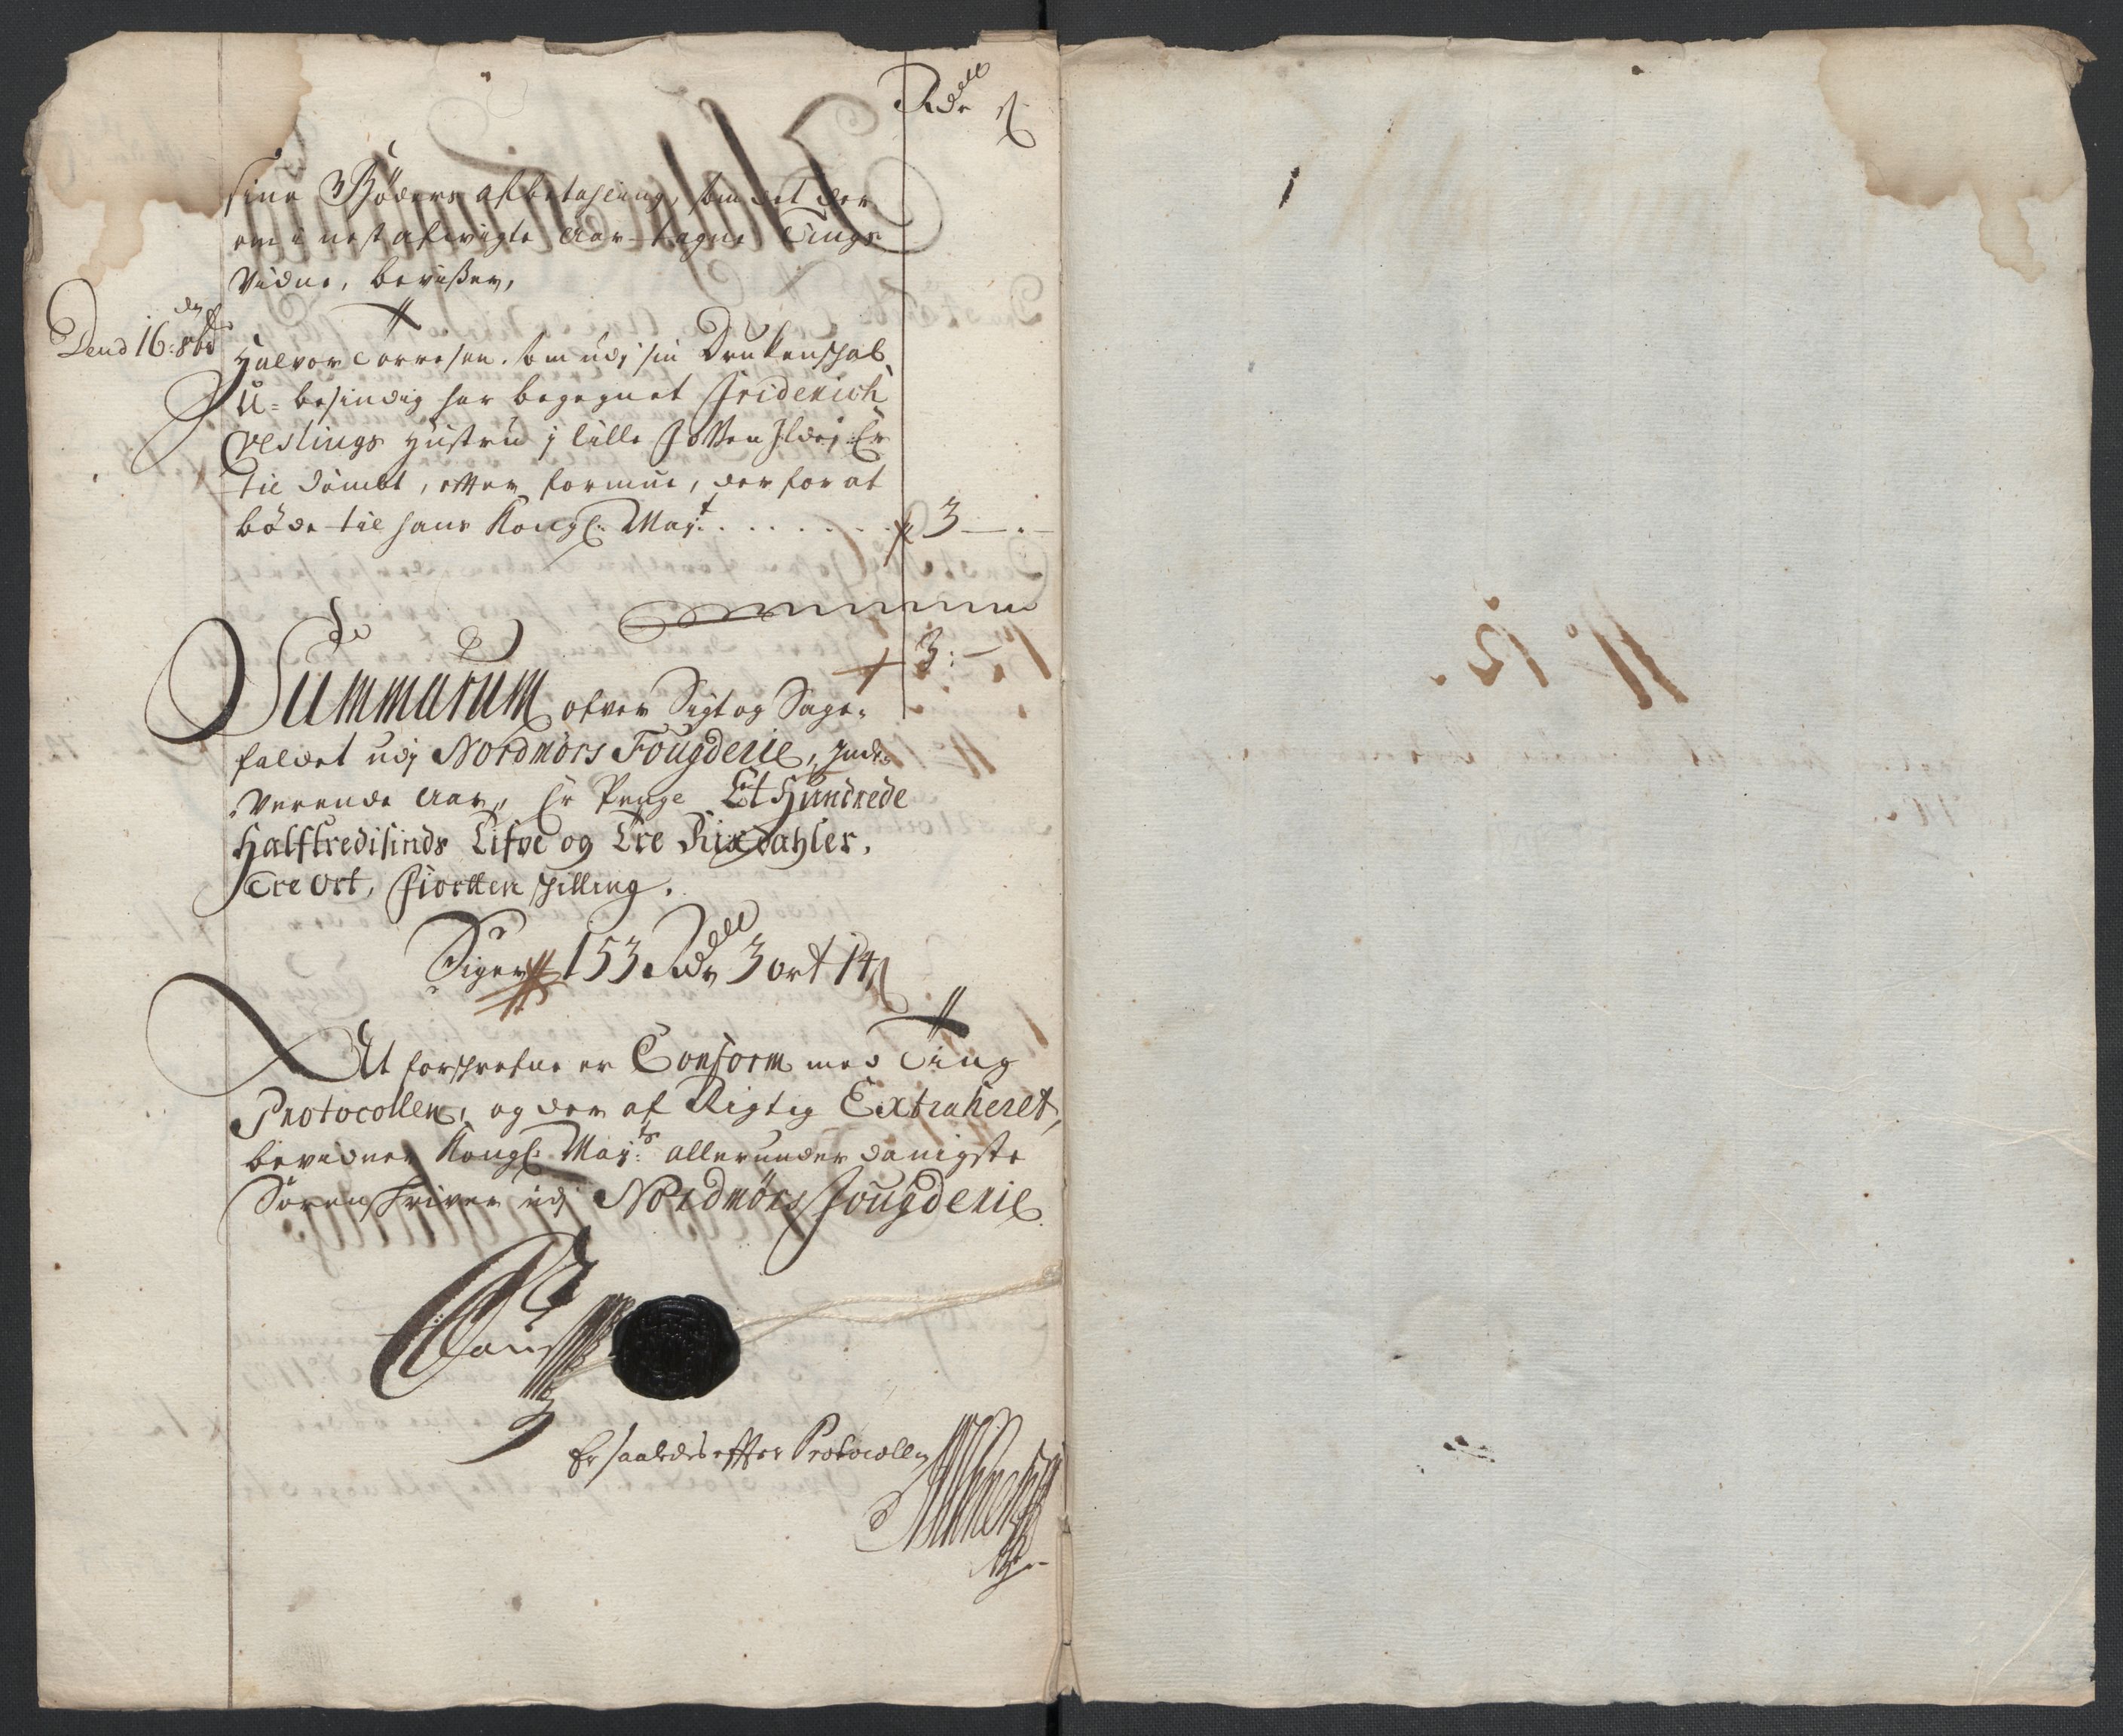 Rdr ß
sine Böders afbetahling, som det der
om i nest afvigte Aar tagne Tings
Vidne, beviser,
Dend 16: 8br
Halvor Torresen som udj sin Druckenschab
U-besindig har begegnet Friderich
Veslings Hustru j lille Fossen Ildej Er
til dömbt, efter formue, der for at
böde til hans Kongl: May:t . . . . . . . 3 — . —
3: —
Summarum ofver Sigt og Sage-
faldet udj Nordmörs Fougderie, Inde-
verende Aar, Er Penge Et Hundrede
Halftredisinds Tifve og Tre Rixdahler,
Tre Ort, Fiorten schilling.
Siger 153 Rdr 3 ort 14 ß
At forschrefne er Conform med Ting
Protocollen, og der af Rigtig Extraheret,
bevidner Kongl: May:ts allerunderdanigste
Sorenschriver udj Nordmörs Fougderie
Er saaledes efter Protocollen
No 12.